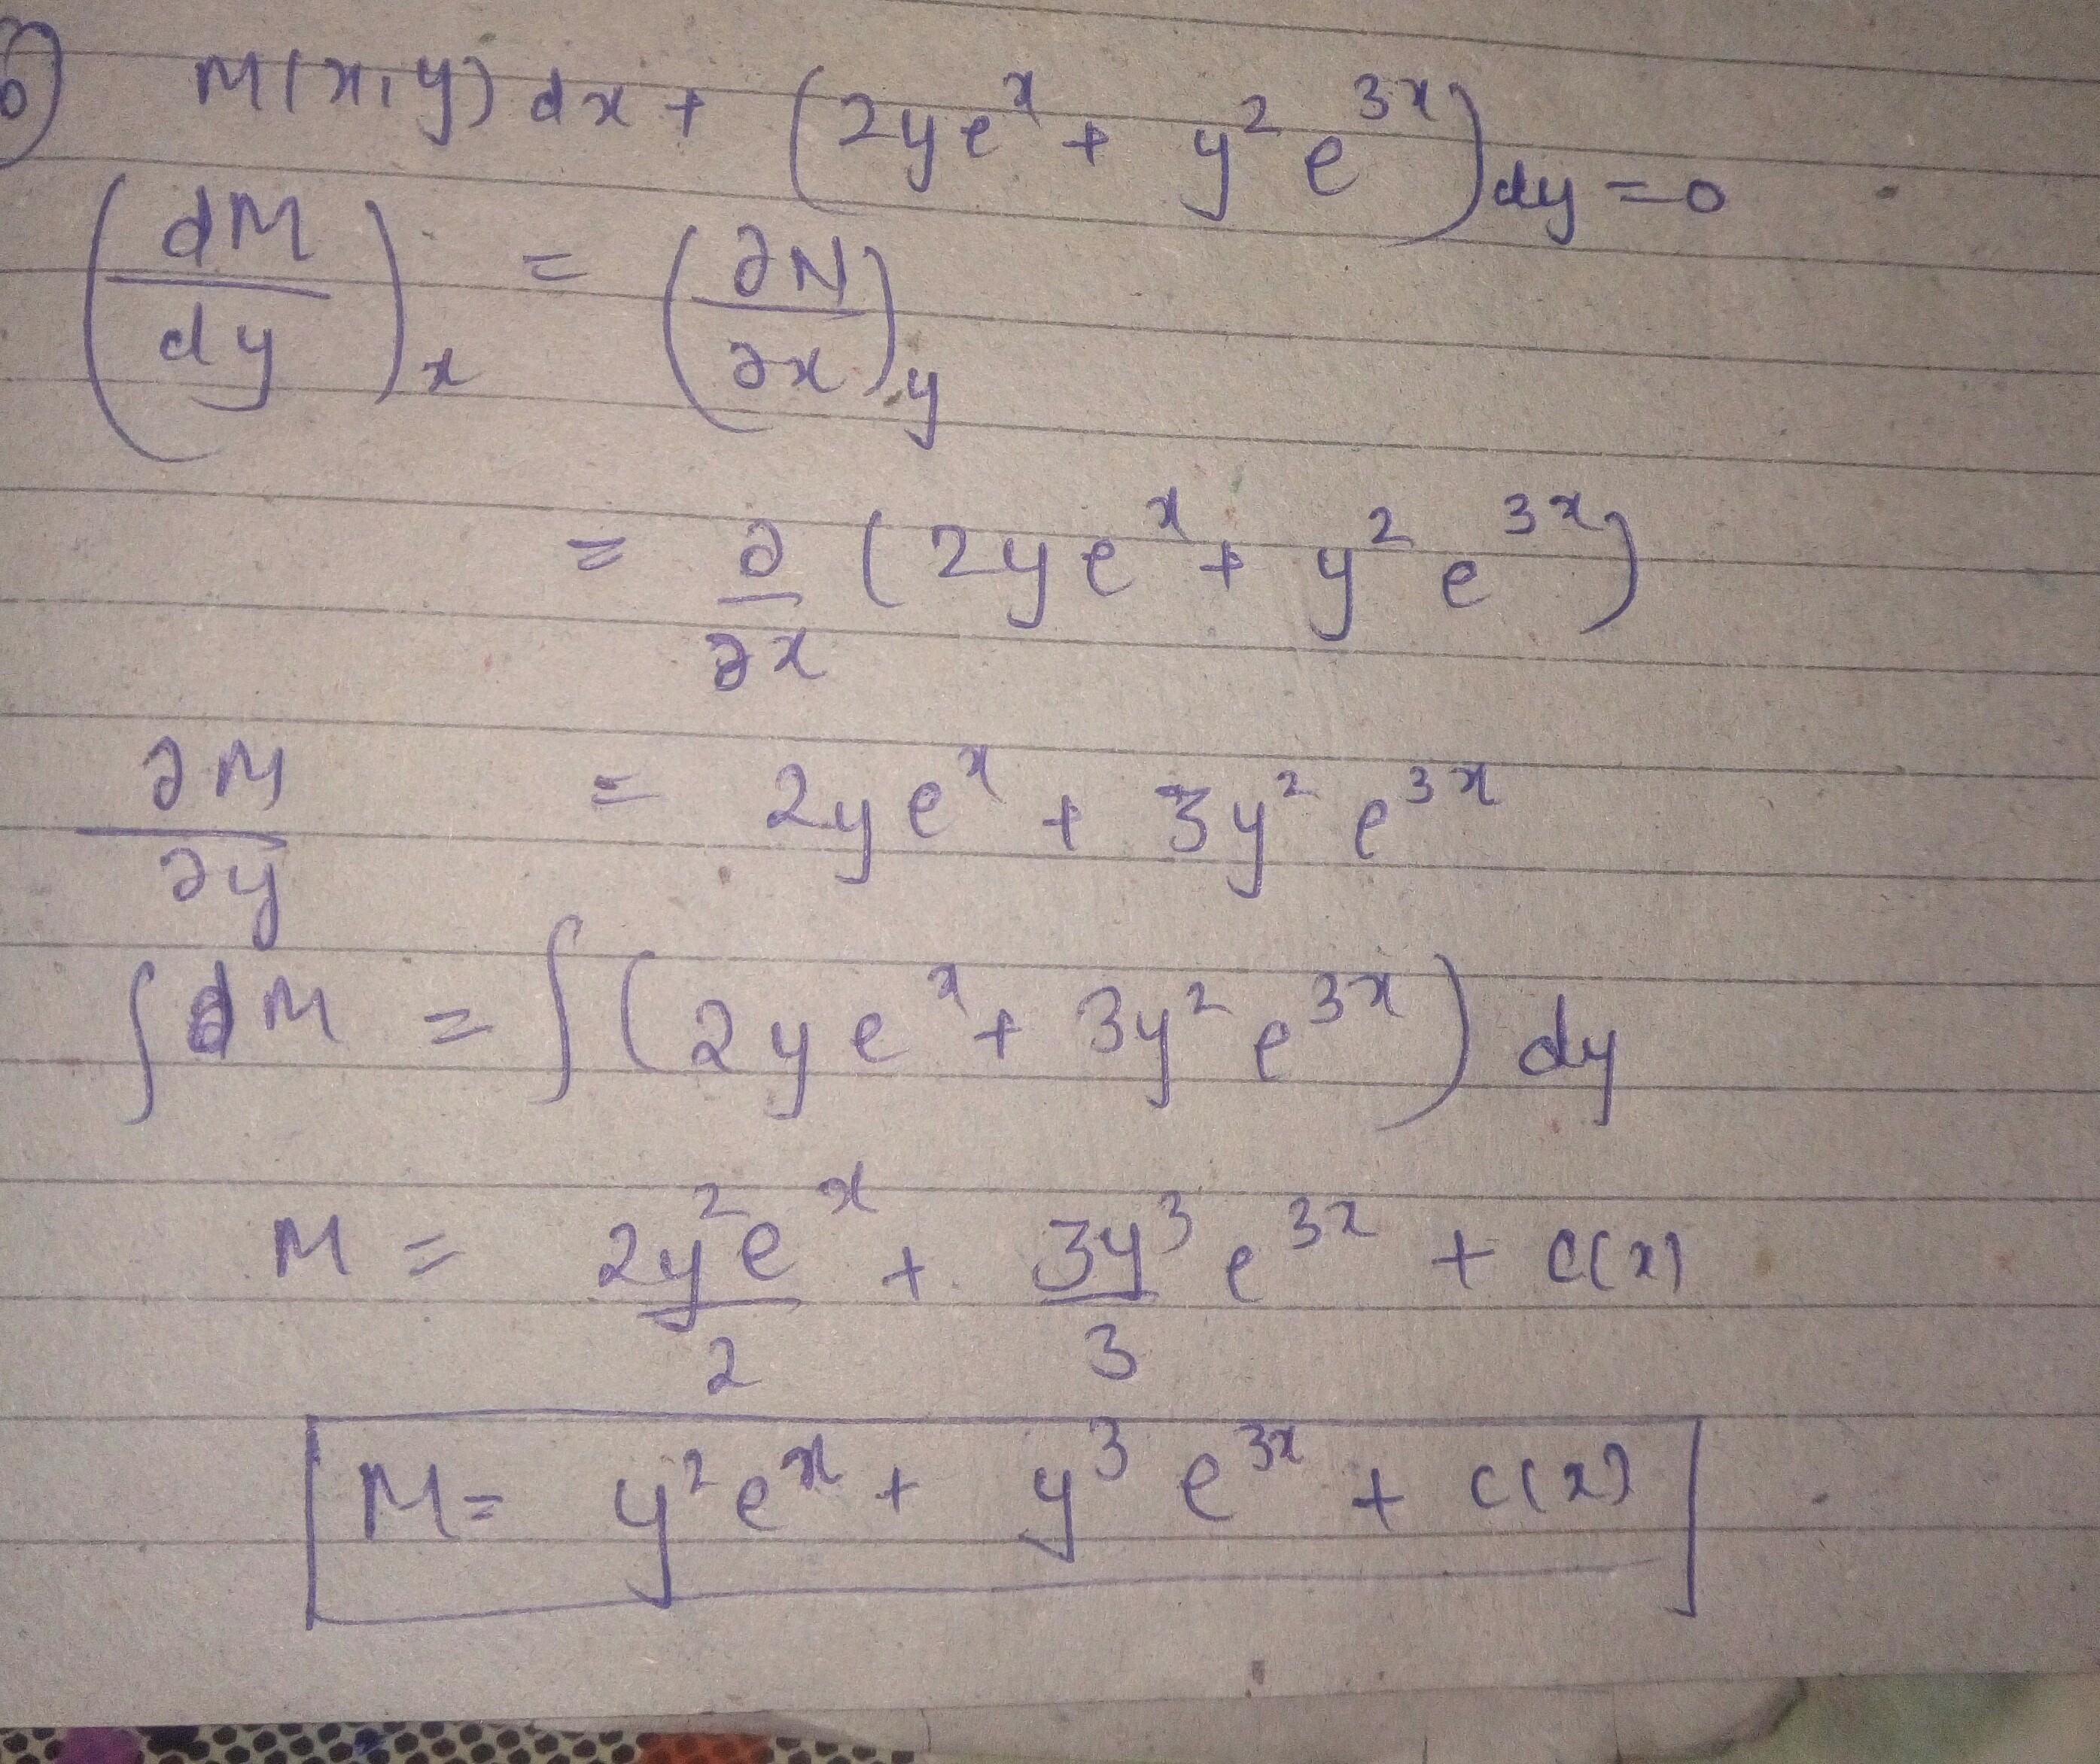 b) M(x,y) dx + (2ye^x + y^2 e^{3x}) dy = 0
(dM/dy)_x = (∂N/∂x)_y
= ∂/∂x (2ye^x + y^2 e^{3x})
∂M/∂y = 2ye^x + 3y^2 e^{3x}
∫dM = ∫(2ye^x + 3y^2 e^{3x}) dy
M = 2y^2e^x/2 + 3y^3/3 e^{3x} + C(x)
M = y^2e^x + y^3 e^{3x} + C(x)